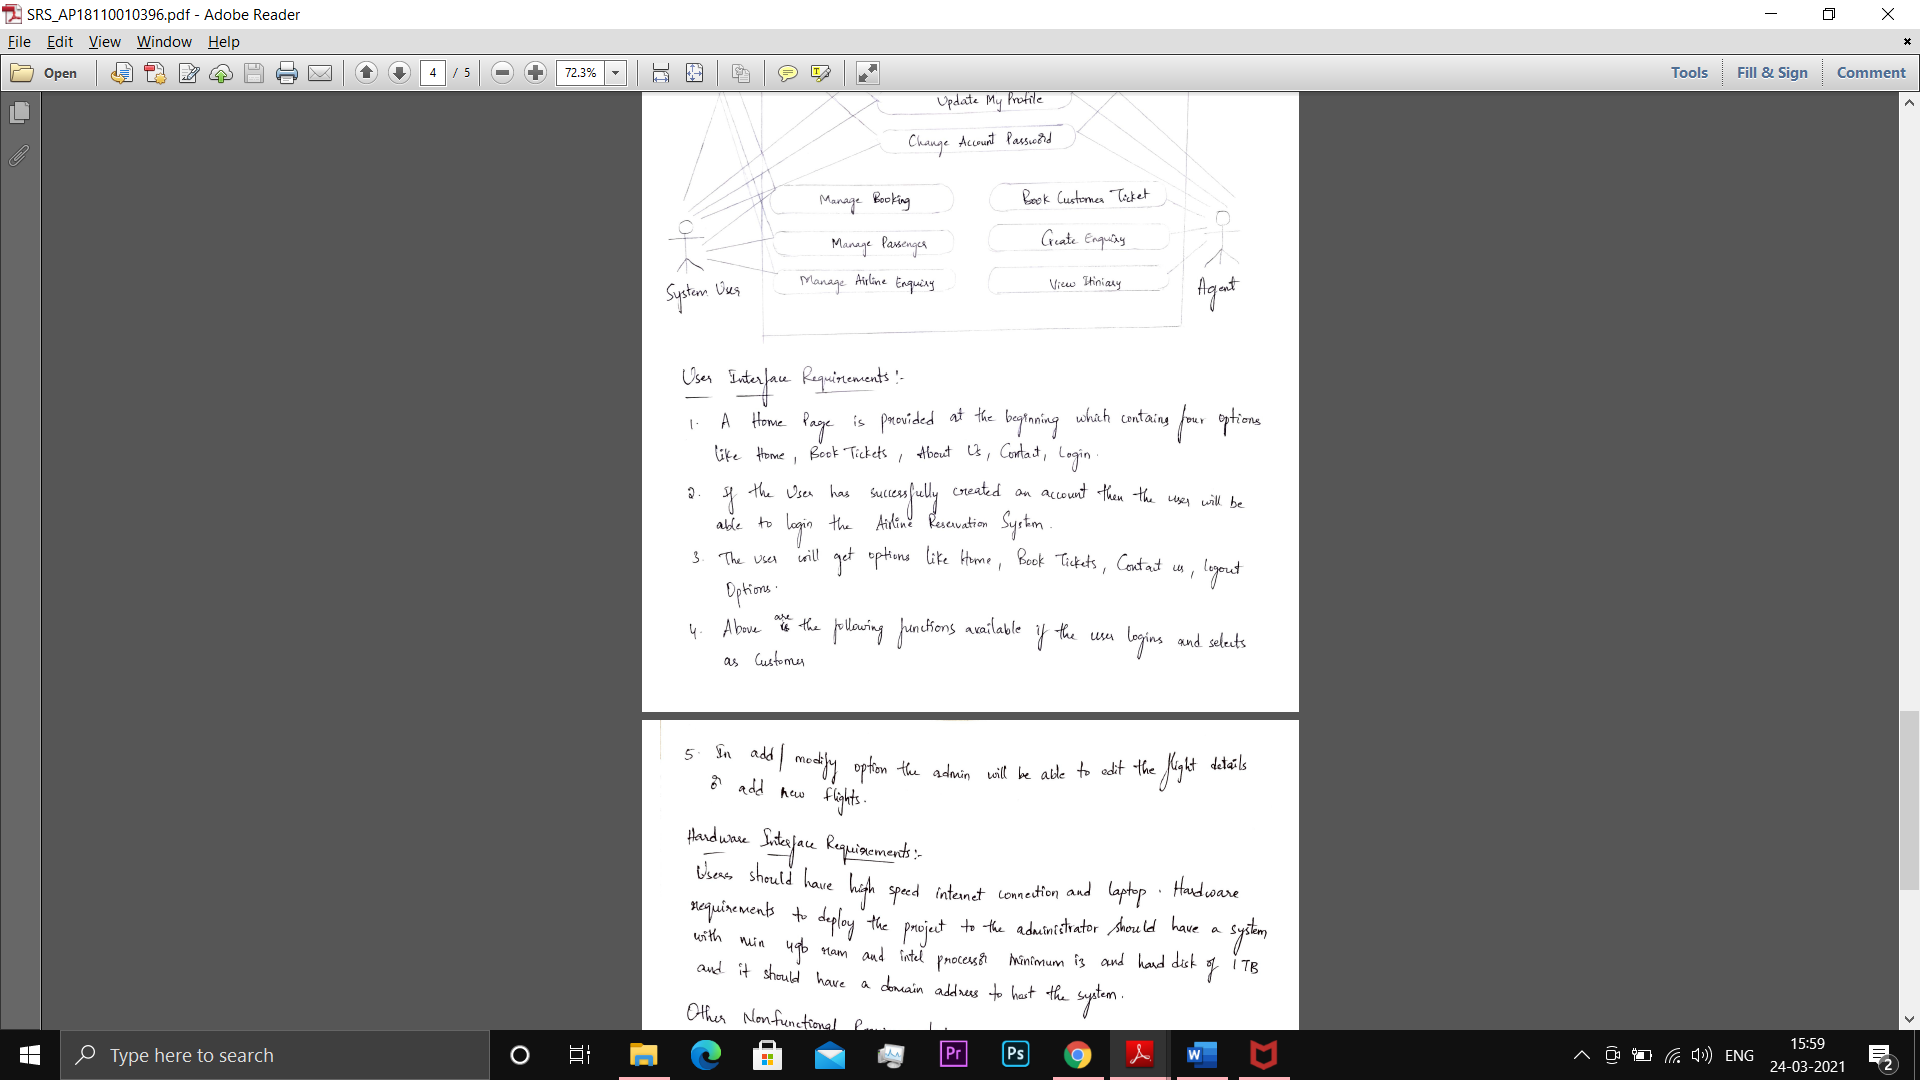 SRS_AP18110010396.pdf - Adobe Reader
File Edit View Window Help
Open 4 / 5 72.3% Tools Fill & Sign Comment
Update My Profile
Change Account Password
Manage Booking Book Customer Ticket
Manage Passenger Create Enquiry
Manage Airline Enquiry View Itiniary
System User Agent
User Interface Requirements :-
1. A Home Page is provided at the beginning which contains four options
like Home, Book Tickets, About Us, Contact, Login.
2. If the User has successfully created an account then the user will be
able to login the Airline Reservation System.
3. The user will get options like Home, Book Tickets, Contact us, logout
Options.
4. Above are the following functions available if the user logins and selects
as Customer
5. In add/modify option the admin will be able to edit the flight details
or add new flights.
Hardware Interface Requirements :-
Users should have high speed internet connection and laptop. Hardware
requirements to deploy the project to the administrator should have a system
with min 4gb ram and intel processor minimum i3 and hard disk of 1 TB
and it should have a domain address to host the system.
Other Nonfunctional
Type here to search
Pr Ps W ENG 15:59
24-03-2021 2